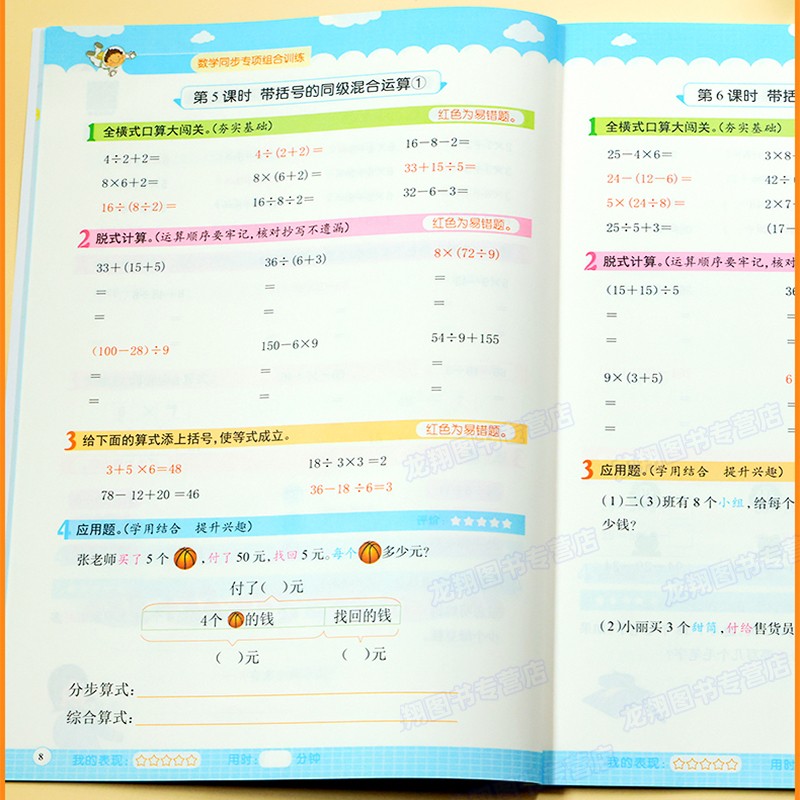 数学同步专项组合训练
第5课时 带括号的同级混合运算①
1 全横式口算大闯关。(夯实基础) 红色为易错题。
4÷2+2= 4÷(2+2)= 16-8-2=
8×6+2= 8×(6+2)= 33+15÷5=
16÷(8÷2)= 16÷8÷2= 32-6-3=
2 脱式计算。(运算顺序要牢记,核对抄写不遗漏) 红色为易错题。
33+(15+5) 36÷(6+3) 8×(72÷9)
= = =
= = =
(100-28)÷9 150-6×9 54÷9+155
= = =
= = =
3 给下面的算式添上括号,使等式成立。 红色为易错题。
3+5 ×6=48 18÷ 3×3 =2
78- 12+20 =46 36-18 ÷6=3
4 应用题。(学用结合 提升兴趣) 评价:
张老师买了5个 ,付了50元,找回5元。每个 多少元?
付了( )元
4个 的钱 找回的钱
( )元 ( )元
分步算式:
综合算式:
8 我的表现: 用时: 分钟
第6课时 带括
1 全横式口算大闯关。(夯实基础)
25-4×6= 3×8
24-(12-6)= 42÷
5×(24÷8)= 2×7
25÷5+3= (17-
2 脱式计算。(运算顺序要牢记,核对
(15+15)÷5
=
=
9×(3+5) 6
=
=
3 应用题。(学用结合 提升兴趣)
(1)二(3)班有8个小组,给每个
少钱?
(2)小丽买3个甜筒,付给售货员
我的表现: 用时
龙翔图书专营店
龙翔图书专营店
龙翔图书专营店
龙翔图书专营店
龙翔图书专营店
龙翔图书专营店